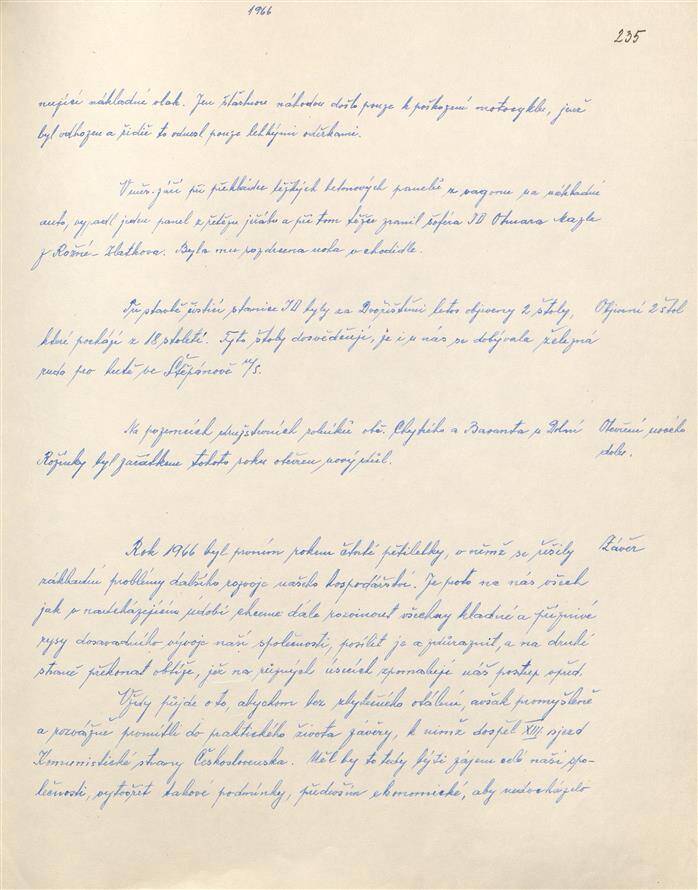 1966
235
nující nákladné vlak. Jen šťastnou náhodou došlo pouze k poškození motocyklu, jenž
byl odhozen a řidič to odnesl pouze lehkými oděrkami.
V měs. září při překládce těžkých betonových panelů z vagonu na nákladné
auto, vypadl jeden panel z řetězu jeřábu a při tom těžce zranil šoféra JD Otmara Mazla
z Rožné - Zlatkova. Byla mu rozdrcena noha v chodidle.
Při stavbě ústřed. stanice JD byly za Dvořištěm letos objeveny 2 štoly,
Objevení 2 štol
které pochází z 18. století. Tyto štoly dosvědčují, že i u nás se dobývala železná
ruda pro hutě ve Štěpánově n/S.
Na pozemcích družstevních rolníků obč. Chytkého a Basanta u Dolní
Otevření nového
Rožínky byl začátkem tohoto roku otevřen nový důl.
dolu.
Rok 1966 byl prvním rokem čtvrté pětiletky, v němž se řešily
Závěr
základní problémy dalšího rozvoje našeho hospodářství. Je proto na nás všech
jak v nadcházejícím údobí chceme dále rozvinout všechny kladné a příznivé
rysy dosavadního vývoje naší společnosti, posílit je a zdůraznit, a na druhé
straně překonat obtíže, jež na různých úsecích zpomalují náš postup vpřed.
Vždy půjde o to, abychom bez zbytečného otálení, avšak promyšleně
a rozvážně promítli do praktického života závěry, k nimž dospěl XIII. sjezd
Komunistické strany Československa. Měl by to tedy býti zájem celé naší spo-
lečnosti, vytvořit takové podmínky, především ekonomické, aby nedocházelo